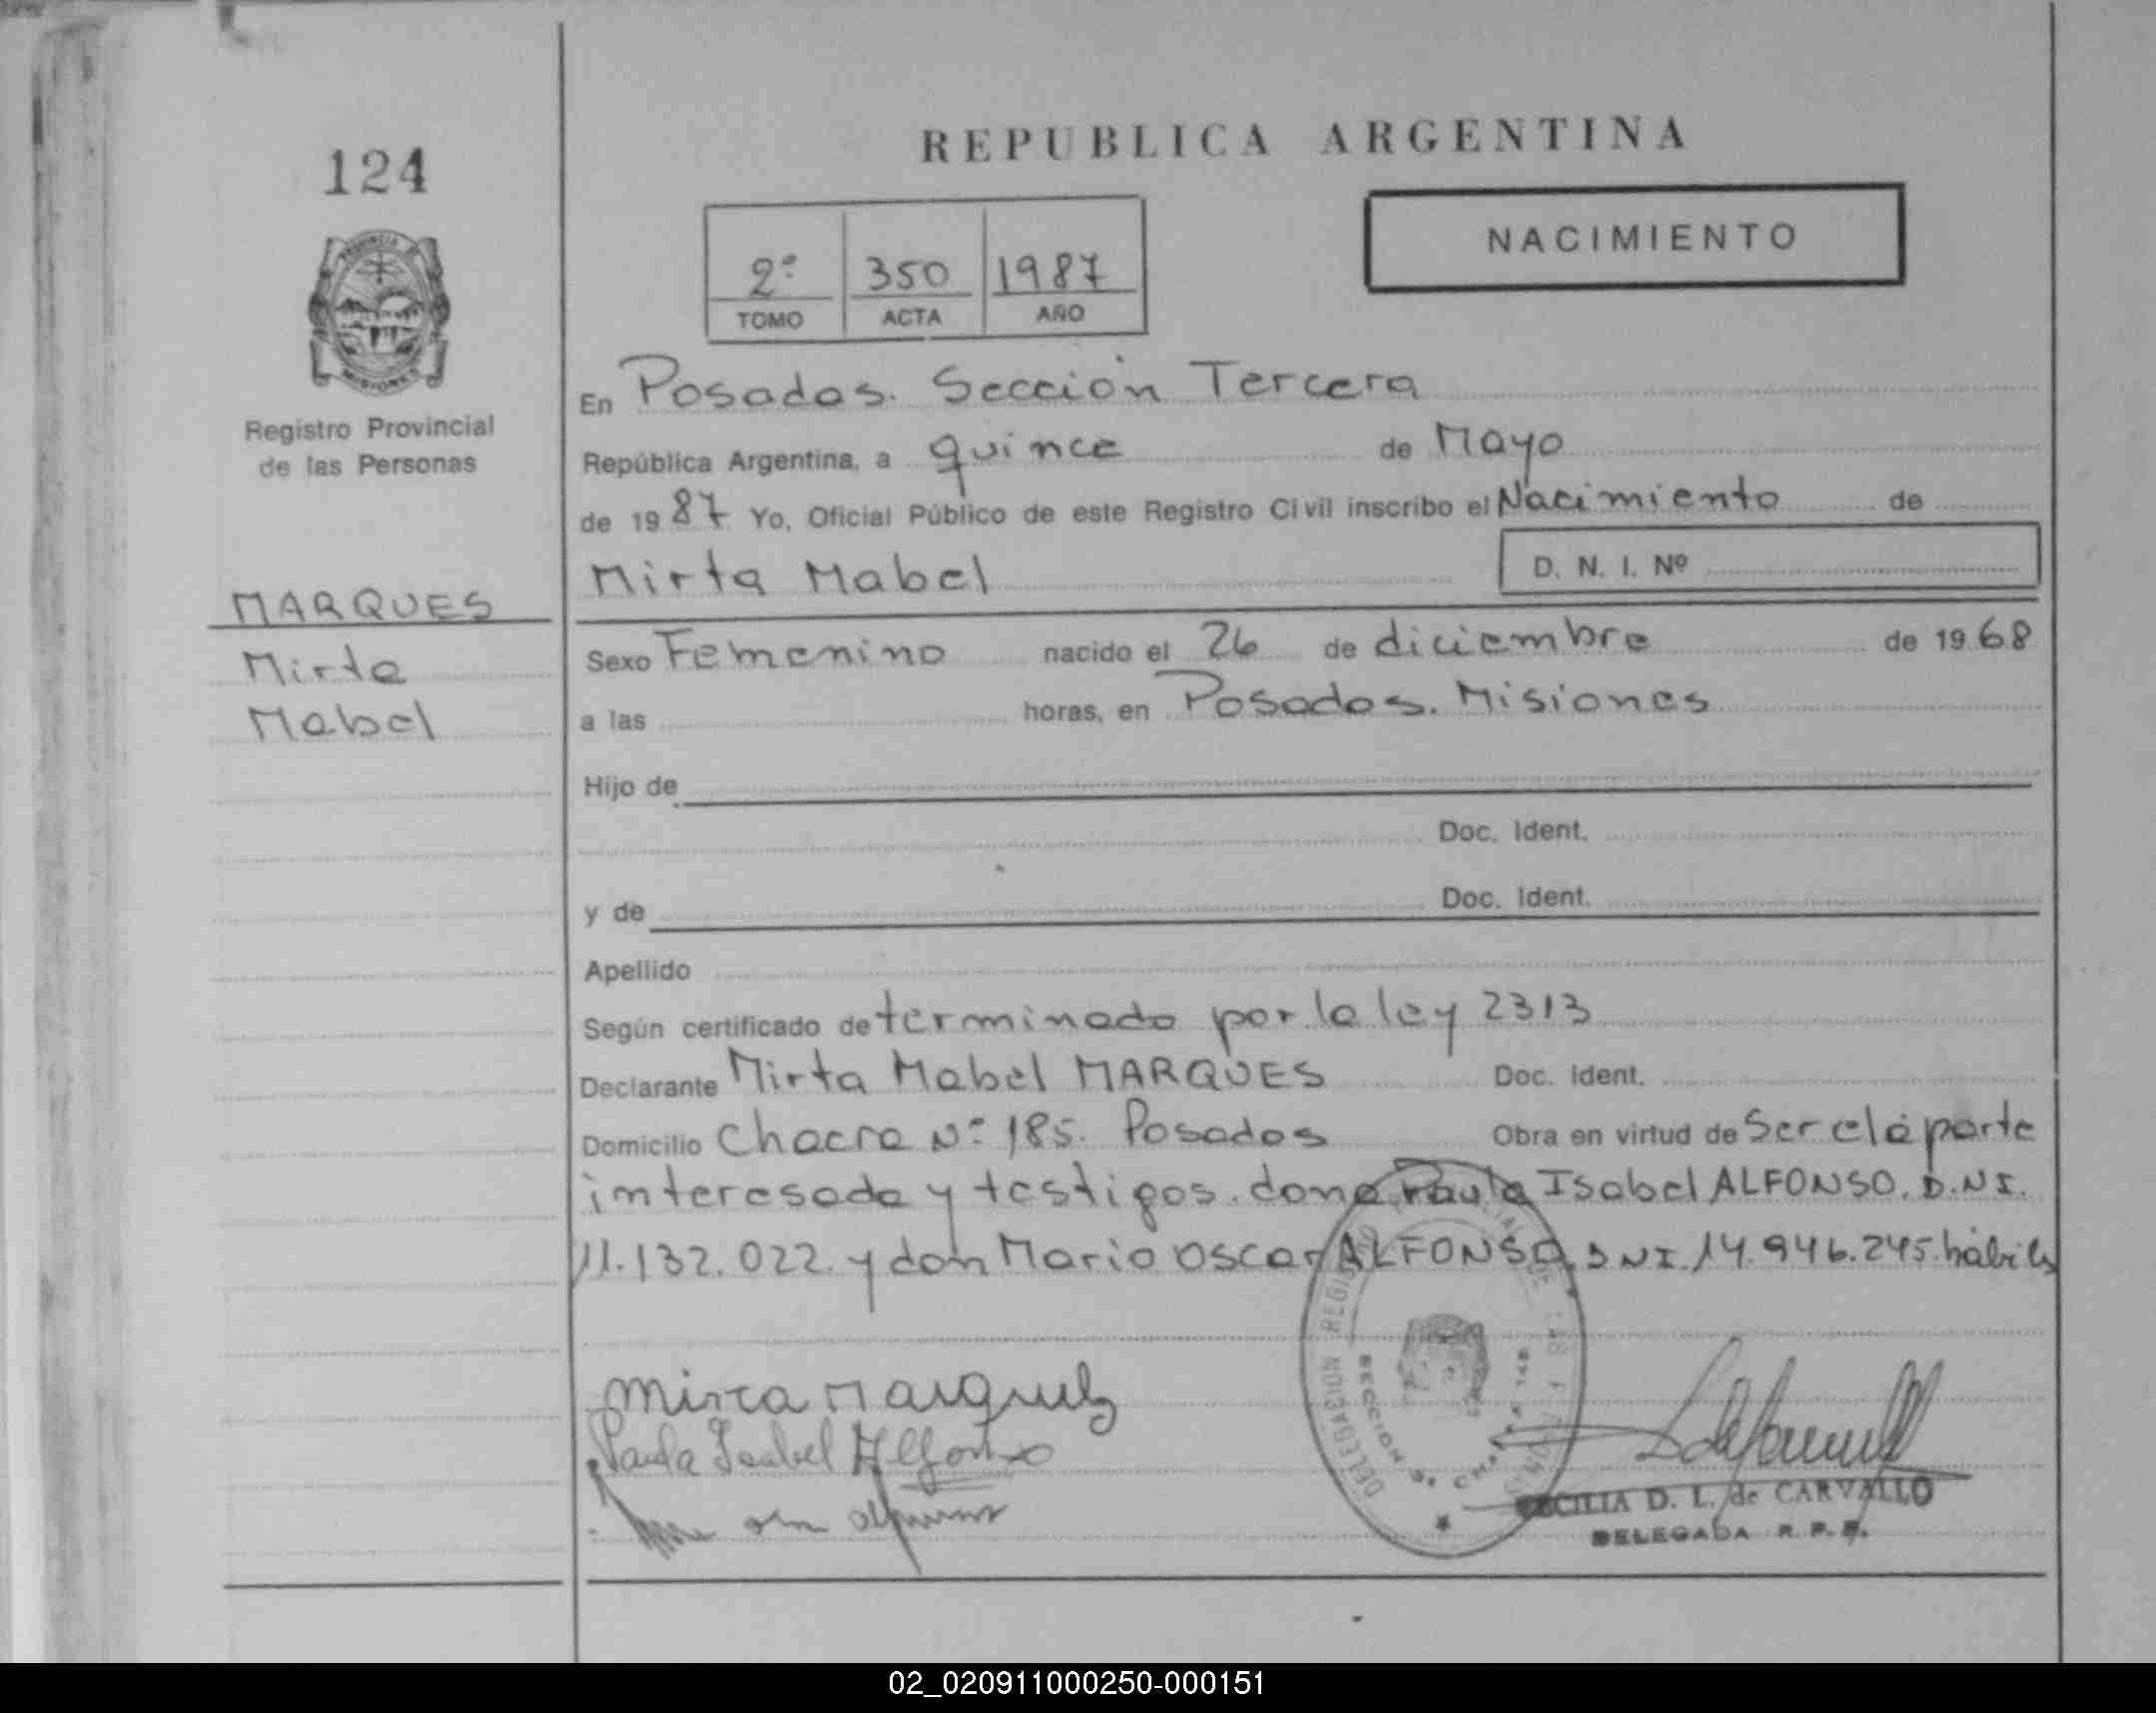 REPUBLICA ARGENTINA
124
NACIMIENTO
2º 350 1987
TOMO ACTA AÑO
Registro Provincial
de las Personas
En Posadas. Sección Tercera
República Argentina, a quince de Mayo
de 1987 Yo, Oficial Público de este Registro Civil inscribo el Nacimiento de
Mirta Mabel D. N. I. Nº
MARQUES
Mirta
Mabel
Sexo Femenino nacido el 26 de diciembre de 1968
a las horas, en Posadas. Misiones
Hijo de
Doc. Ident.
y de Doc. Ident.
Apellido
Según certificado determinado por la ley 2313
Declarante Mirta Mabel MARQUES Doc. Ident.
Domicilio Chacra Nº 185. Posadas Obra en virtud de ser el la parte
interesada y testigos. dona Paula Isabel ALFONSO. D.N.I.
11.132.022. y don Mario Oscar ALFONSO. D N I. 14.946.245. hábiles
Mirta Marquez
Paula Isabel Alfonso
CECILIA D. L. de CARVALLO
DELEGADA R. P. P.
02_020911000250-000151